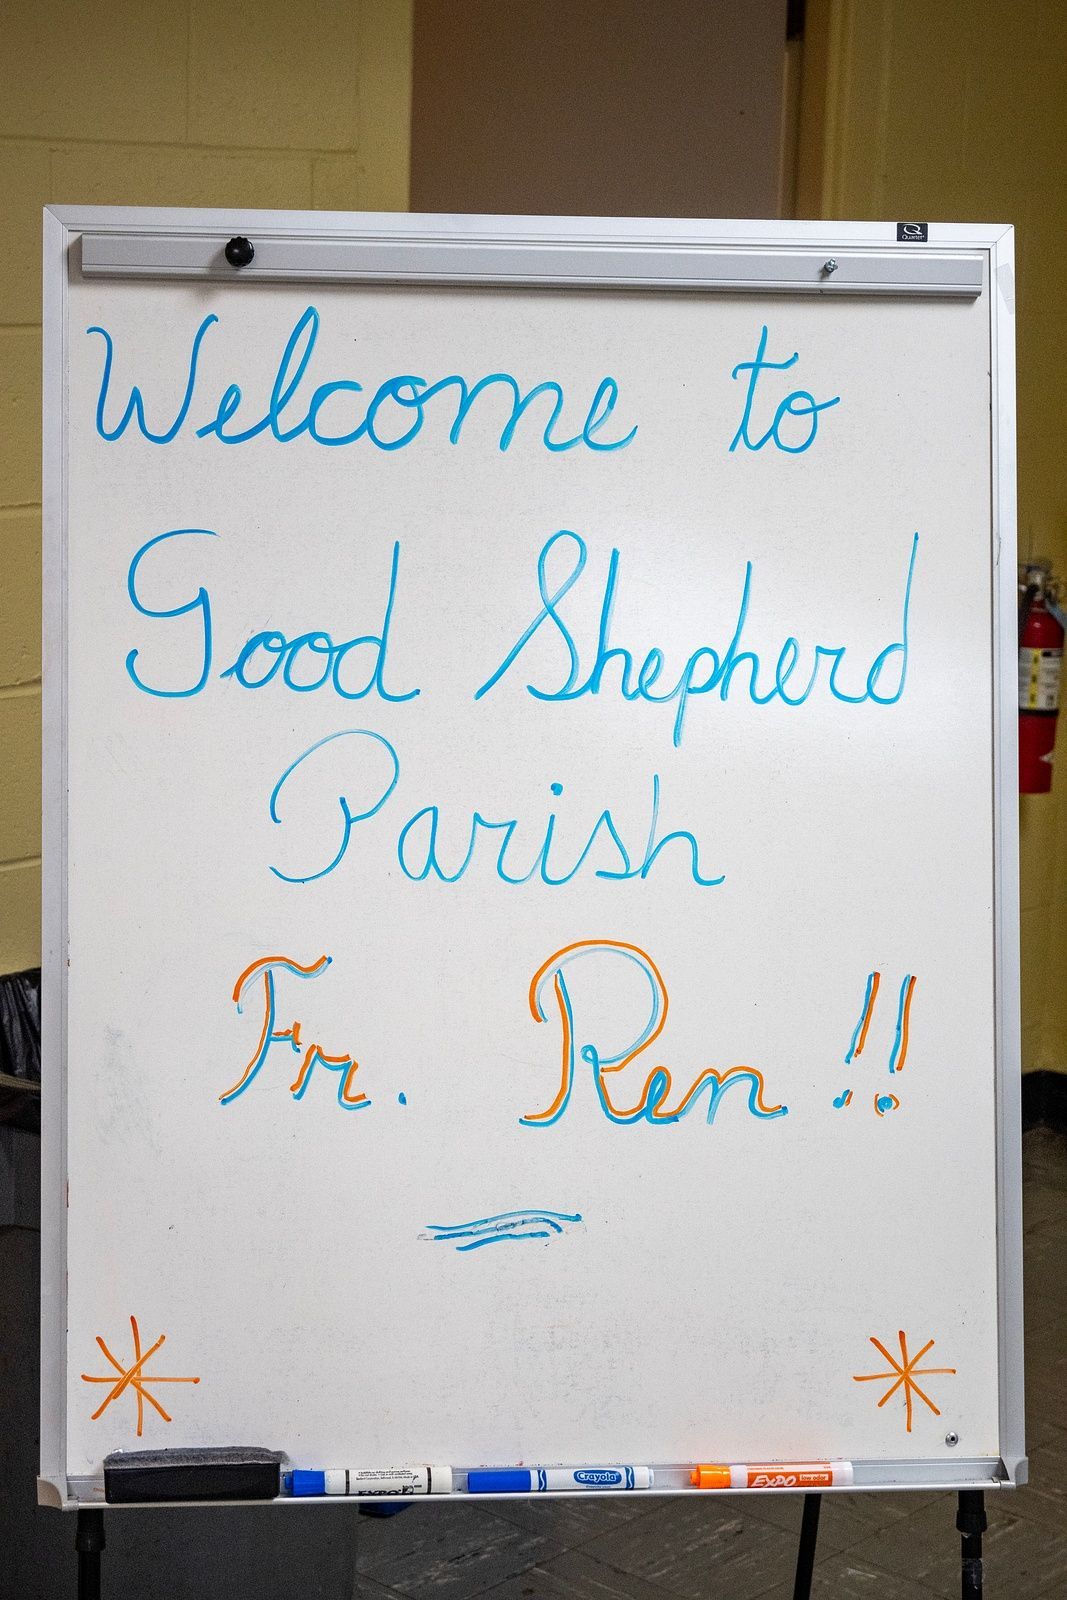 Quartet
Welcome to
Good Shepherd
Parish
Fr. Ren!!
EXPO
Crayola
EXPO low odor